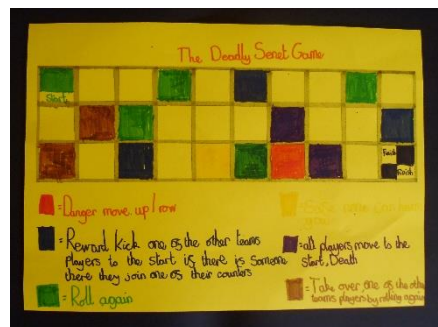 The Deadly Senet Game
Start
Finish
Finish
= Danger move up 1 row
= Reward Kick one of the other teams
players to the start if there is someone
there they join one of their counters
= Roll again
= all players move to the
Start, Death
= Take over one of the other
teams players by rolling again